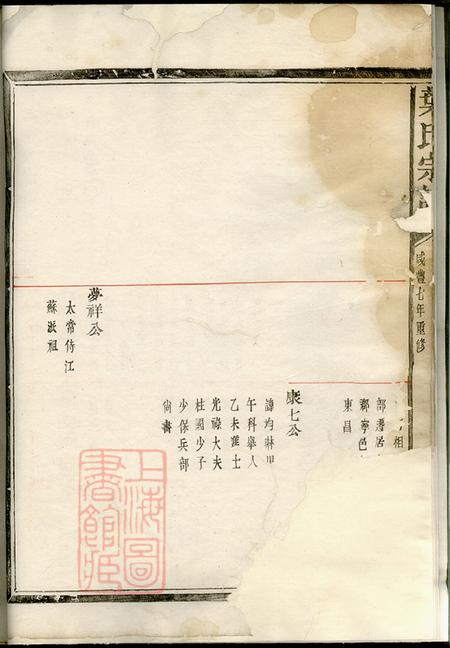 葉氏宗譜
咸豐七年重修
相
部遷居
鄰寧邑
東昌
康七公
諱均
午科舉人
乙未進士
光祿大夫
柱國少子
少保兵部
尙書
夢祥公
太常侍江
蘇派祖
上海圖
書館藏